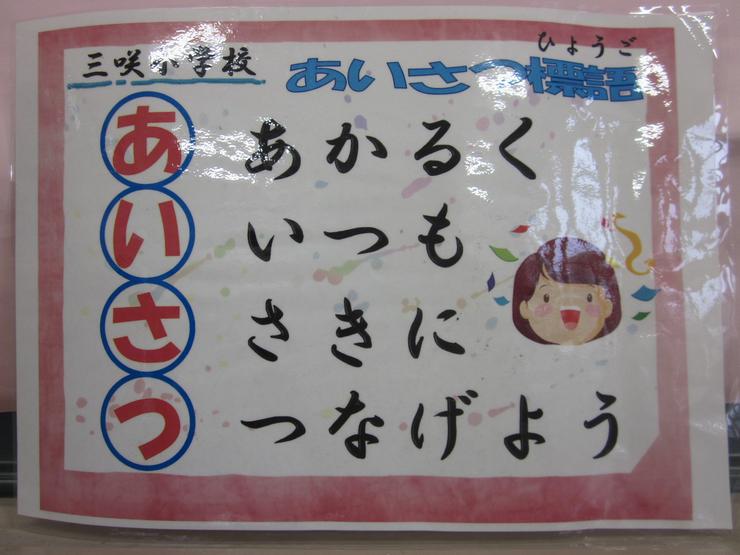 三咲小学校
ひょうご
あいさつ標語
あ あかるく
い いつも
さ さきに
つ つなげよう